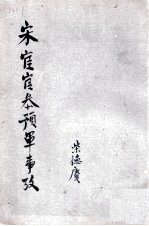 宋宦官參預軍事攷
柴德賡